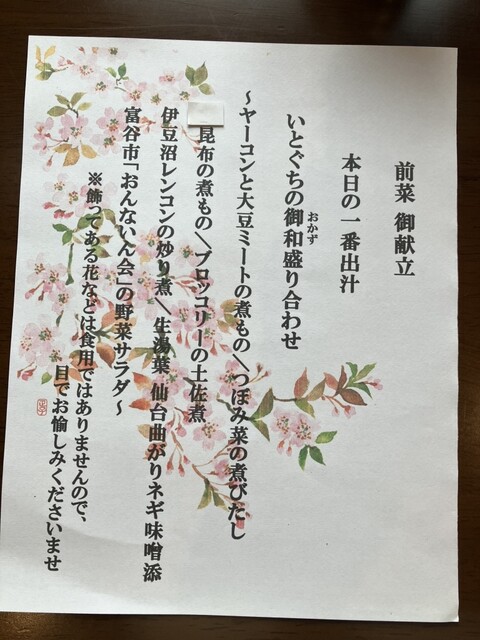 前菜 御献立
本日の一番出汁
いとぐちの御和盛り合わせ
おかず
～ヤーコンと大豆ミートの煮もの\つぼみ菜の煮びたし
昆布の煮もの\ブロッコリーの土佐煮
伊豆沼レンコンの炒り煮\生湯葉 仙台曲がりネギ味噌添
富谷市「おんないん会」の野菜サラダ～
※飾ってある花などは食用ではありませんので、
目でお愉しみくださいませ